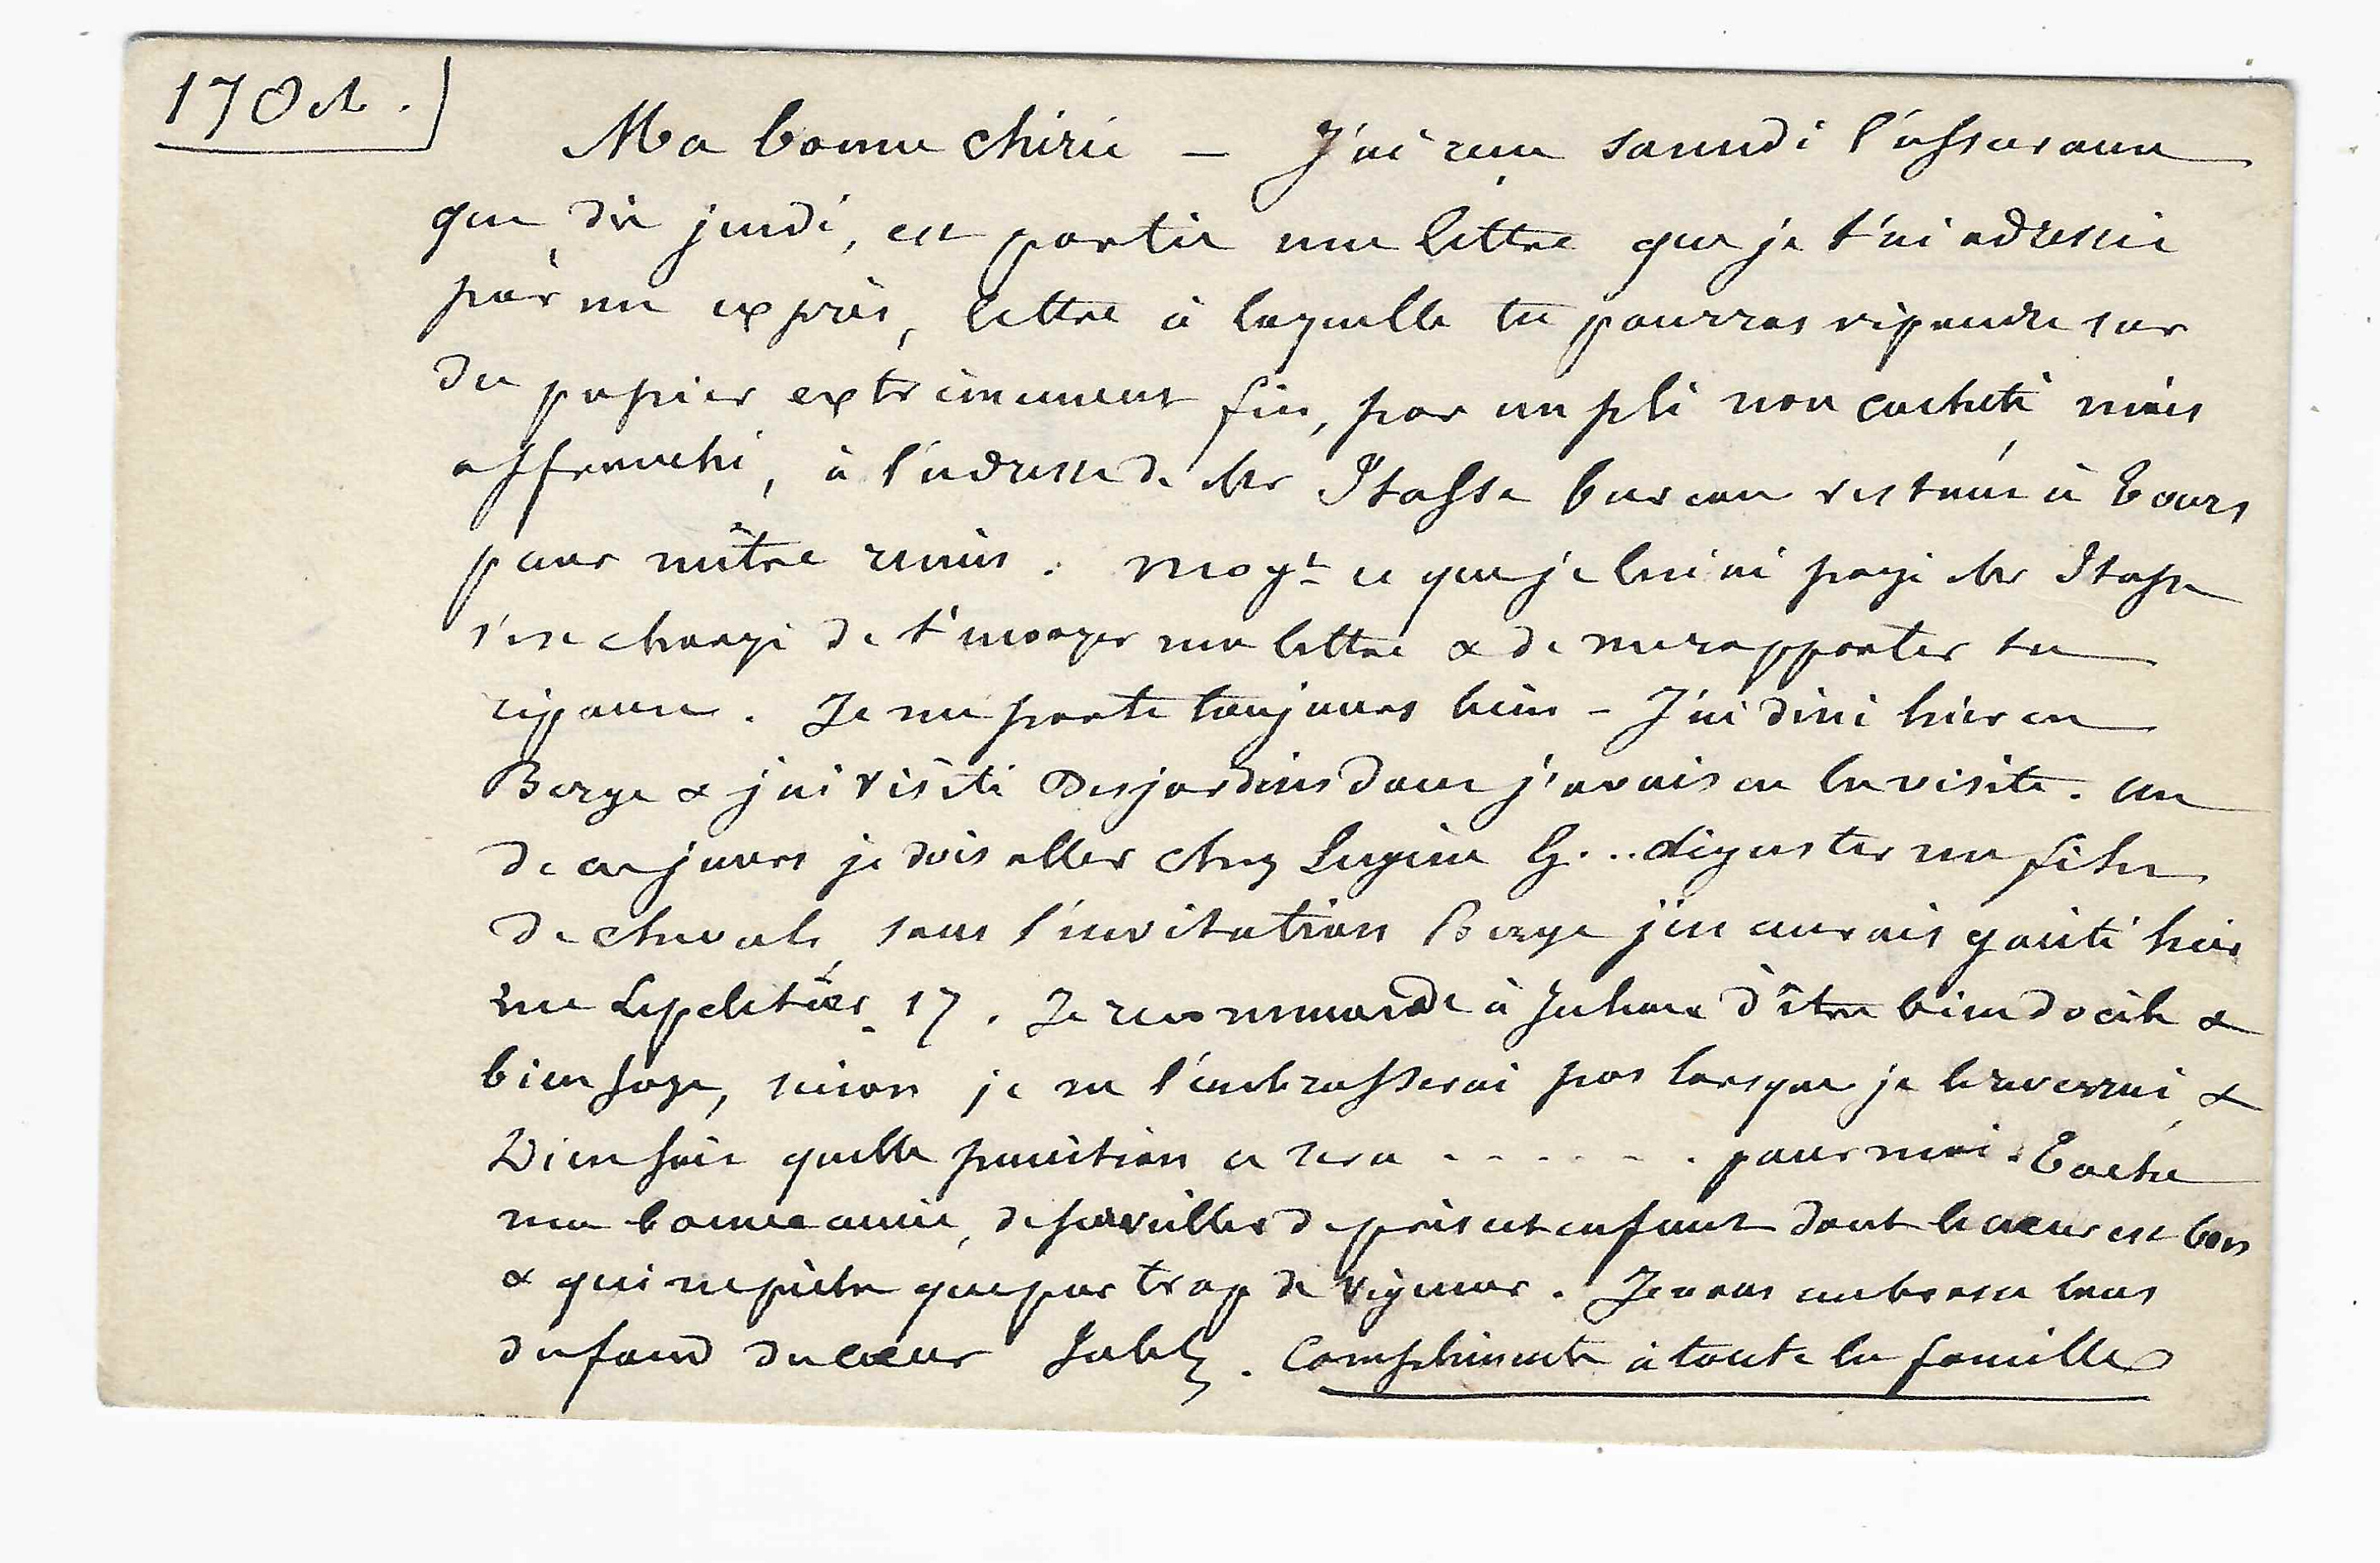 17 Oct.
Ma bonne chérie — J'ai reçu samedi l'assurance
que, dès jeudi, est partie une lettre que je t'ai adressée
par un exprès, lettre à laquelle tu pourras répondre sur
du papier extrêmement fin, par un pli non cacheté mais
affranchi, à l'adresse de Mr Itasse bureau restant à Tours
pour m'être remis. Moyt ce que je lui ai payé Mr Itasse
s'est chargé de t'envoyer ma lettre & de me rapporter ta
réponse. Je me porte toujours bien - J'ai diné hier en
Berge & j'ai visité Desjardins dont j'avais eu la visite. Un
de ces jours je dois aller chez Eugène G... déguster un filet
de cheval, sans l'invitation Berge j'en aurais goûté hier
rue Lepeletier 17. Je recommande à d'être bien docile &
bien sage, sinon je ne l'embrasserai pas lorsque je le reverrai &
Dieu sait quelle punition ce sera . . . . . . . pour moi. Tâche
ma bonne amie, de surveiller de près cet enfant dont le cœur est bon
& qui ne pèche que par trop de vigueur. Je vous embrasse tous
du fond du cœur . Compliments à toute la famille